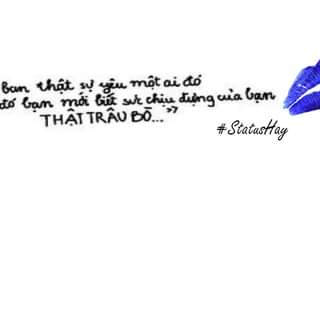 bạn thật sự yêu một ai đó
đó bạn mới biết sức chịu đựng của bạn
THẬT TRÂU BÒ..."
#StatusHay